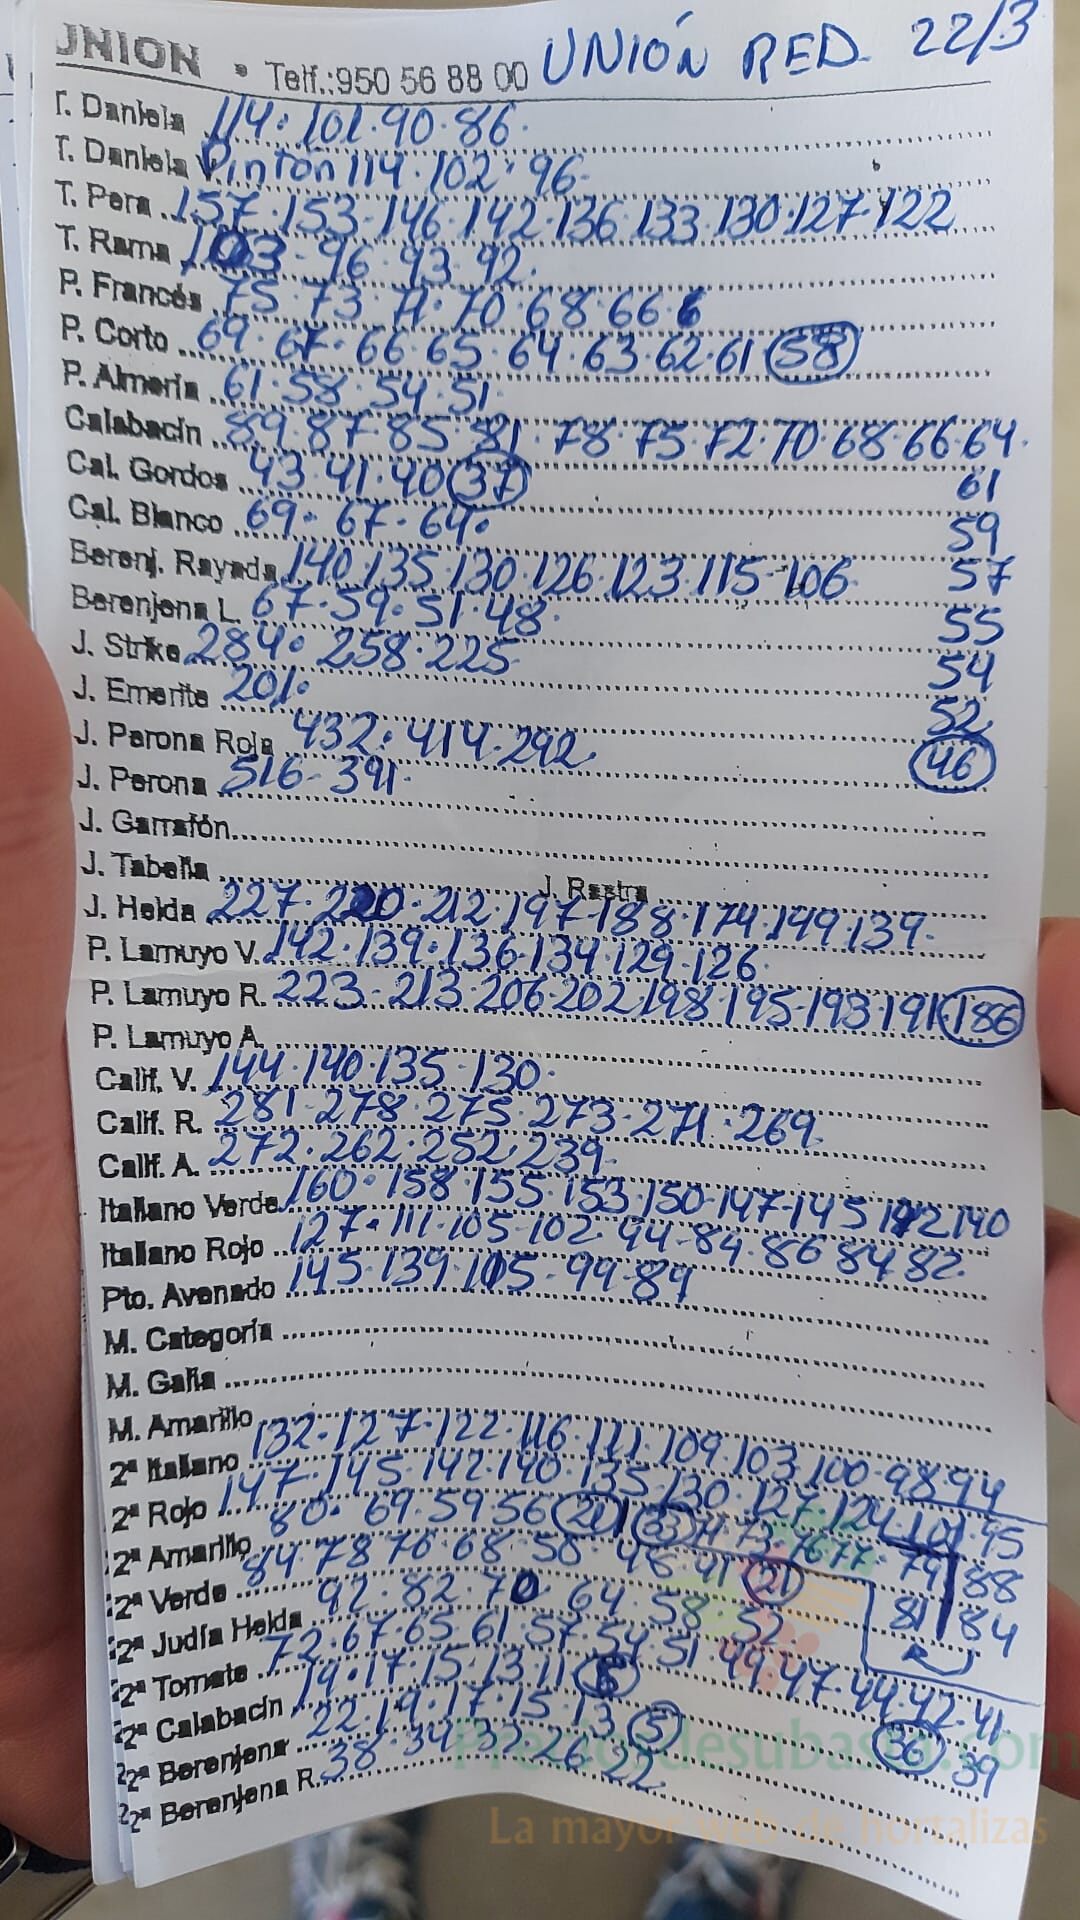 UNION • Telf.:950 56 88 00 UNIÓN RED 22/3
T. Daniela 114 · 101 · 90 · 86
T. Daniela V Pinton 114 · 102 · 96
T. Pera 157 · 153 · 146 · 142 · 136 · 133 · 130 · 127 · 122
T. Rama 103 · 96 · 93 · 92
P. Francés 75 · 73 · 71 · 70 · 68 · 66
P. Corto 69 · 67 · 66 · 65 · 64 · 63 · 62 · 61 58
P. Almería 61 · 58 · 54 · 51
Calabacín 89 · 87 · 85 · 81 · 78 · 75 · 72 · 70 · 68 · 66 · 64
61
Cal. Gordos 43 · 41 · 40 37
59
Cal. Blanco 69 · 67 · 64
57
Berenj. Rayada 140 · 135 · 130 · 126 · 123 · 115 · 106
55
Berenjena L. 67 · 59 · 51 · 48
54
J. Strike 284 · 258 · 225
52
J. Emerite 201
46
J. Perona Roja 432 · 414 · 292
J. Perona 516 · 391
J. Garrafón
J. Tabella J. Rastra
J. Helda 227 · 220 · 212 · 197 · 188 · 174 · 149 · 139
P. Lamuyo V. 142 · 139 · 136 · 134 · 129 · 126
P. Lamuyo R. 223 · 213 · 206 · 202 · 198 · 195 · 193 · 191 186
P. Lamuyo A.
Calif. V. 144 · 140 · 135 · 130
Calif. R. 281 · 278 · 275 · 273 · 271 · 269
Calif. A. 272 · 262 · 252 · 239
Italiano Verde 160 · 158 · 155 · 153 · 150 · 147 · 145 142 140
Italiano Rojo 127 · 111 · 105 · 102 · 94 · 84 · 86 84 82
Pto. Avenado 145 · 139 · 105 · 99 · 89
M. Categoría
M. Galia
M. Amarillo
2ª Italiano 132 · 127 · 122 · 116 · 111 · 109 · 103 · 100 · 98 · 94
2ª Rojo 147 · 145 · 142 · 140 · 135 · 130 · 127 · 124 · 101 · 95
2ª Amarillo 80 · 69 · 59 56 33 71 · 73 · 76 77 · 79 88
2ª Verde 84 · 78 70 · 68 · 58 · 48 · 41 21 81 84
2ª Judía Helda 92 · 82 · 70 64 · 58 · 52
2ª Tomate 72 · 67 · 65 · 61 · 57 · 54 · 51 · 49 · 47 · 44 · 42 · 41
39 36
2ª Calabacín 19 · 17 · 15 · 13 · 11
2ª Berenjena 22 · 19 · 17 · 15 · 13 5
2ª Berenjena R. 38 · 34 · 32 · 26 · 22
Preciosdesubasta.com
La mayor web de hortalizas